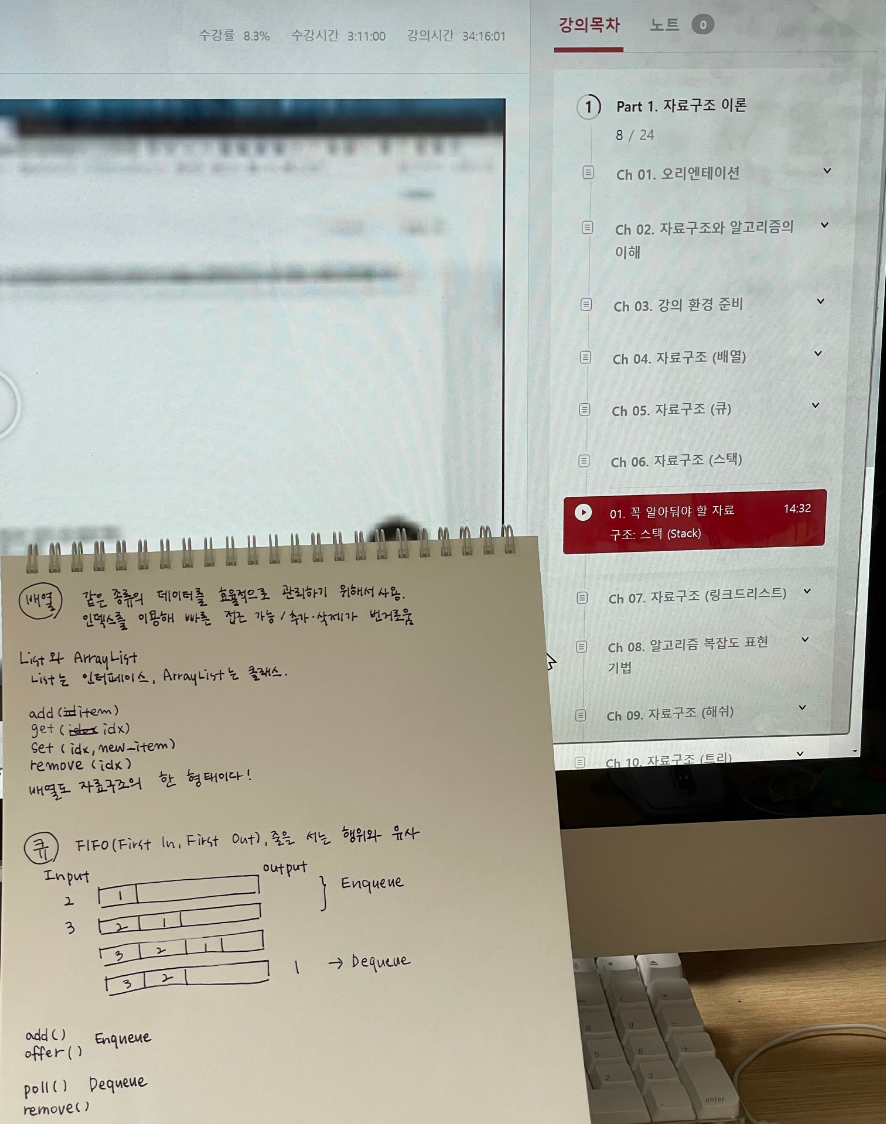 수강률 8.3% 수강시간 3:11:00 강의시간 34:16:01
강의목차 노트 0
1 Part 1. 자료구조 이론
8 / 24
Ch 01. 오리엔테이션
Ch 02. 자료구조와 알고리즘의
이해
Ch 03. 강의 환경 준비
Ch 04. 자료구조 (배열)
Ch 05. 자료구조 (큐)
Ch 06. 자료구조 (스택)
01. 꼭 알아둬야 할 자료 14:32
구조: 스택 (Stack)
Ch 07. 자료구조 (링크드리스트)
Ch 08. 알고리즘 복잡도 표현
기법
Ch 09. 자료구조 (해쉬)
Ch 10. 자료구조 (트리)
배열 같은 종류의 데이터를 효율적으로 관리하기 위해서 사용.
인덱스를 이용해 빠른 접근 가능 / 추가·삭제가 번거로움
List와 ArrayList
List는 인터페이스, ArrayList는 클래스.
add(item)
get(idx)
set(idx, new-item)
remove(idx)
배열도 자료구조의 한 형태이다!
큐 FIFO(First In, First Out), 줄을 서는 행위와 유사
Input output
2 1 } Enqueue
3 2 1
3 2 1
3 2 1 → Dequeue
add() Enqueue
offer()
poll() Dequeue
remove()
enter